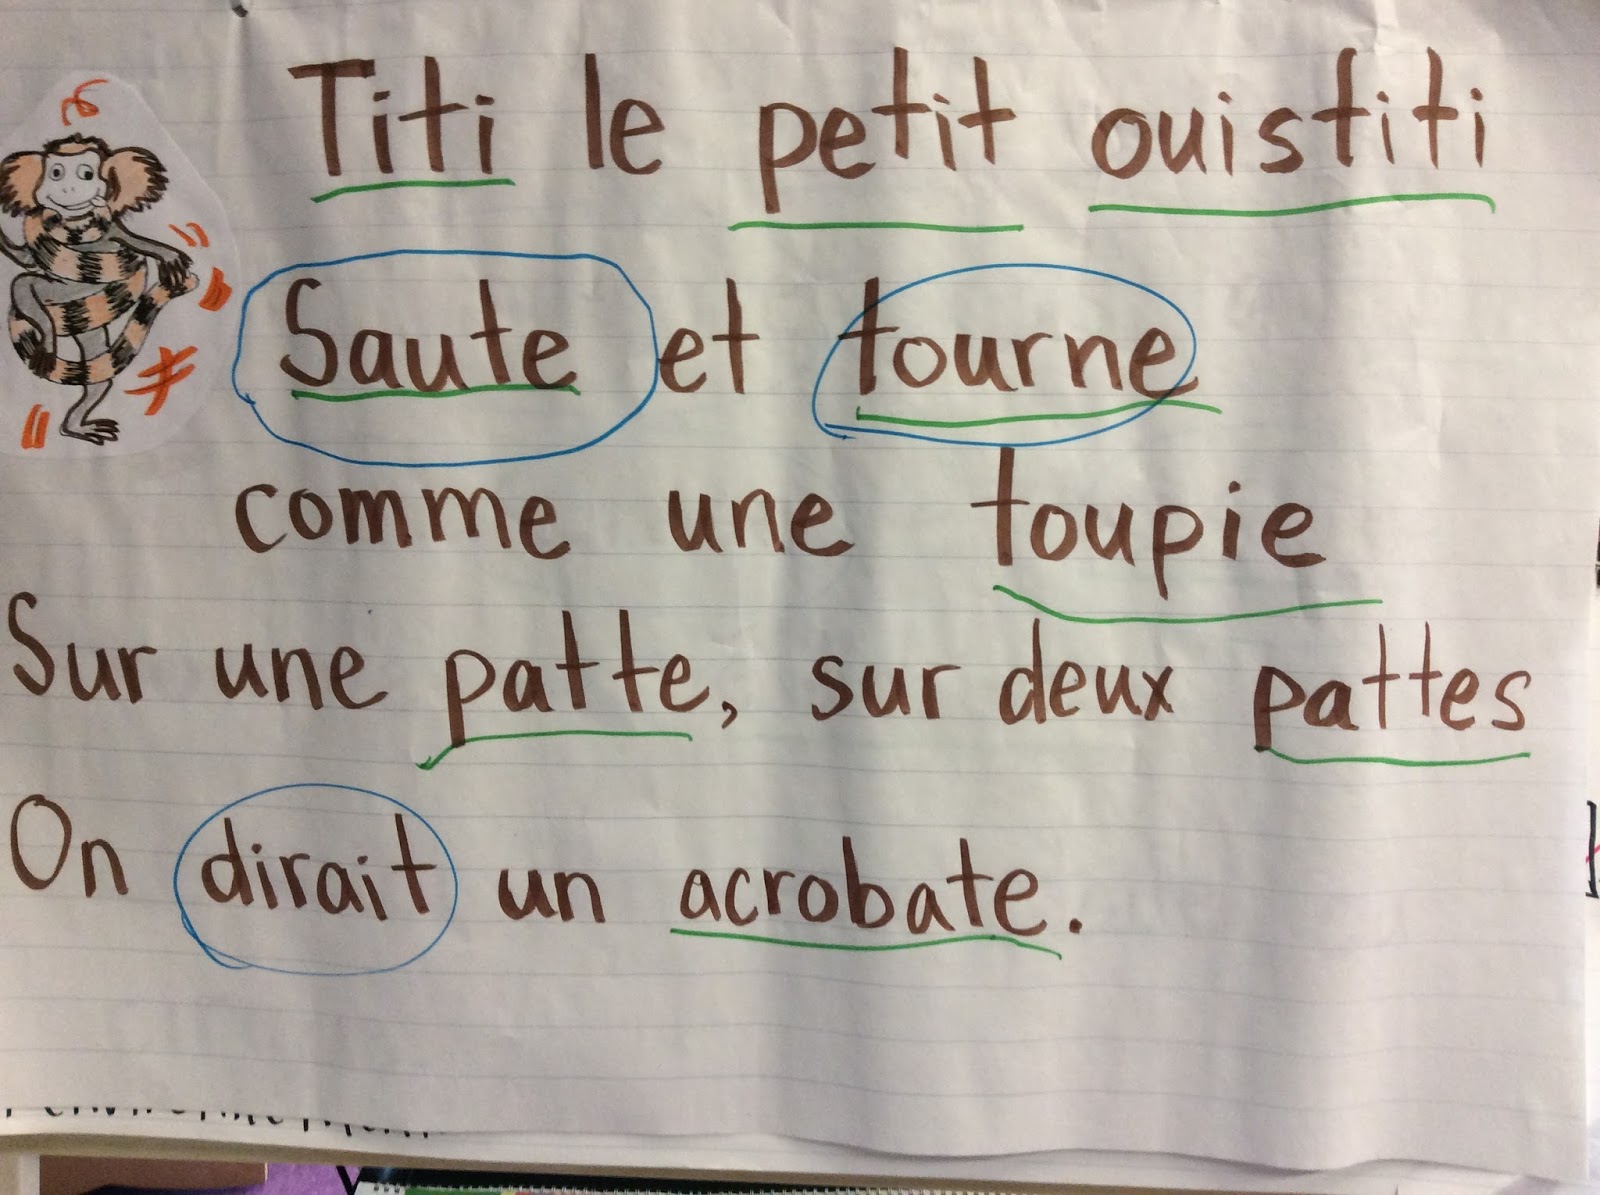 Titi le petit ouistiti
Saute et tourne
comme une toupie
Sur une patte, sur deux pattes
On dirait un acrobate.